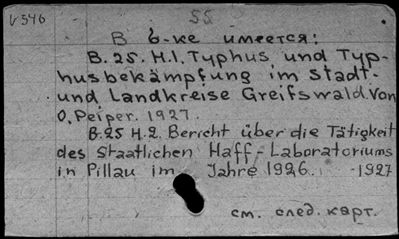 V 546
55
В б-ке имеется:
B. 25. H.1. Typhus und Typ-
husbekämpfung im Stadt-
und Landkreise Greifswald Von
O. Peiper. 1927.
B. 25 H.2. Bericht über die Tätigkeit
des Staatlichen Haff-Laboratoriums
in Pillau im Jahre 1926. 1927
см. след. карт.